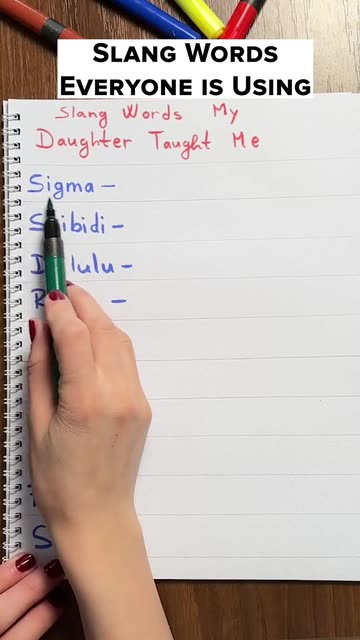 SLANG WORDS
EVERYONE IS USING
Slang Words My
Daughter Taught Me
Sigma –
Skibidi –
Delulu –